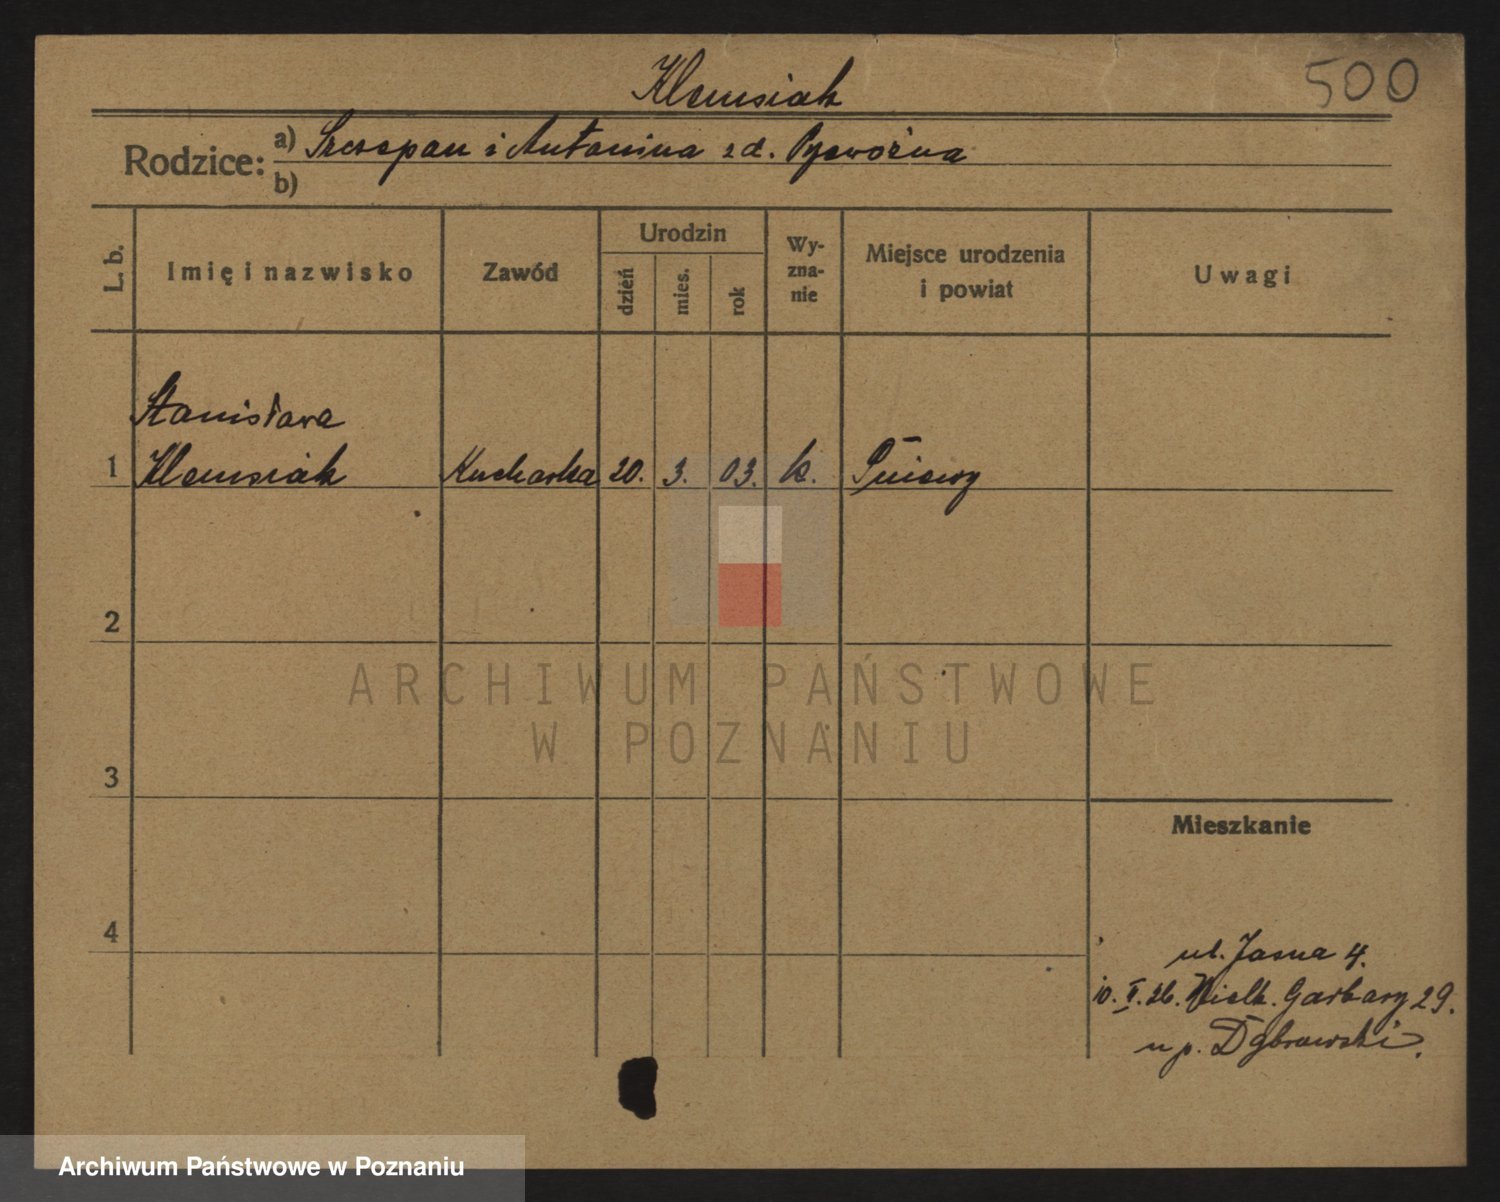 Klemsiak
500
Rodzice:
a) Szczepan i Antonina zd.
b)
L. b.
Imię i nazwisko
Zawód
Urodzin
dzień
mies.
rok
Wy-
zna-
nie
Miejsce urodzenia
i powiat
Uwagi
Stanisława
1 Klemsiak Kucharka 20. 3. 03. k. Pniewy
2
3
4
Mieszkanie
ul. Jasna 4.
10. V. 26. Wielk. Garbary 29.
u p. Dąbrowski.
ARCHIWUM PAŃSTWOWE
W POZNANIU
Archiwum Państwowe w Poznaniu